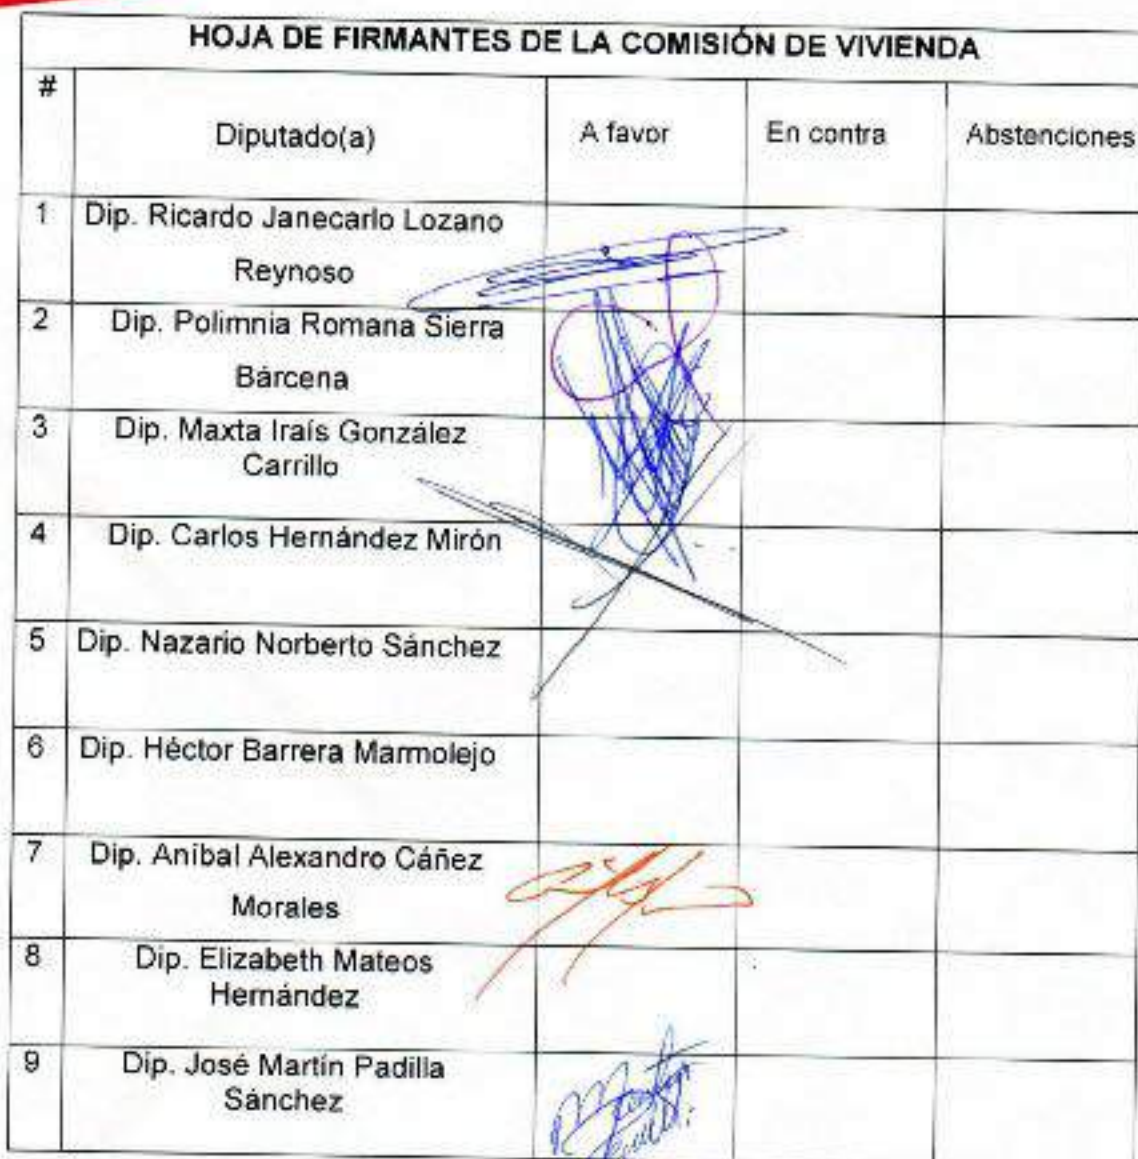 HOJA DE FIRMANTES DE LA COMISIÓN DE VIVIENDA
#
Diputado(a)
A favor
En contra
Abstenciones
1
Dip. Ricardo Janecarlo Lozano
Reynoso
2
Dip. Polimnia Romana Sierra
Bárcena
3
Dip. Maxta Iraís González
Carrillo
4
Dip. Carlos Hernández Mirón
5
Dip. Nazario Norberto Sánchez
6
Dip. Héctor Barrera Marmolejo
7
Dip. Aníbal Alexandro Cáñez
Morales
8
Dip. Elizabeth Mateos
Hernández
9
Dip. José Martín Padilla
Sánchez